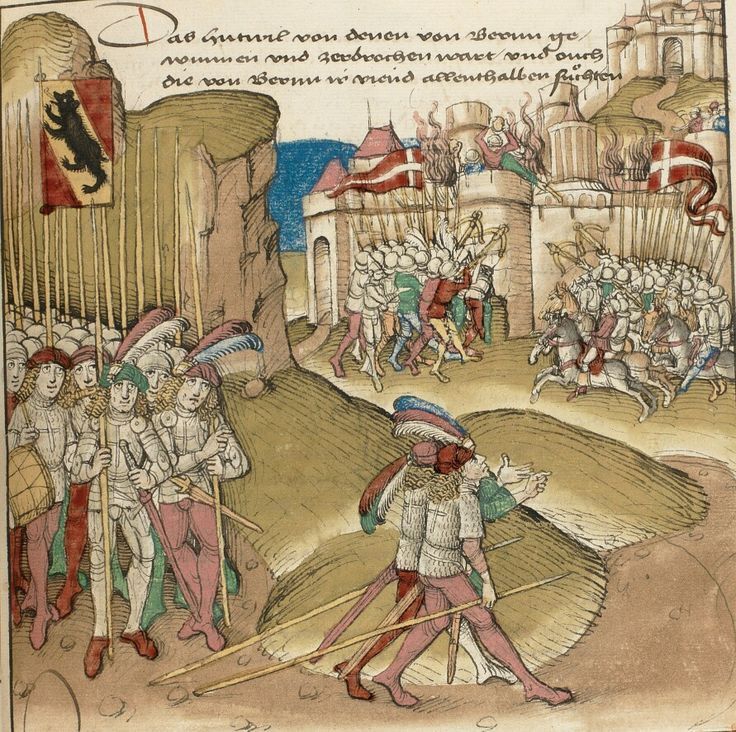 Das hutwil von denen von Bernn ge
wunnen und zerbrochen wart und ouch
die von Bernn ir viend allenthalben suͦchten